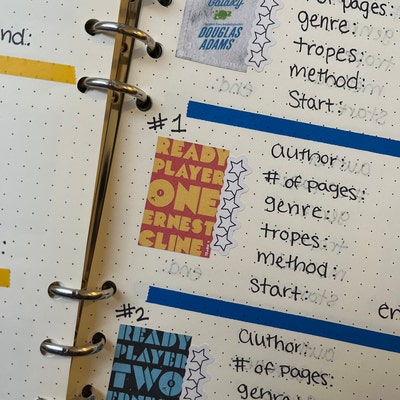 nd:
Galaxy
DOUGLAS
ADAMS
# of pages:
genre:
tropes:
method:
Start:
#1
READY
PLAYER
ONE
ERNEST
CLINE
author:
# of pages:
genre:
tropes:
method:
Start:
en
#2
READY
PLAYER
TWO
ERNEST
author:
# of pages:
genre